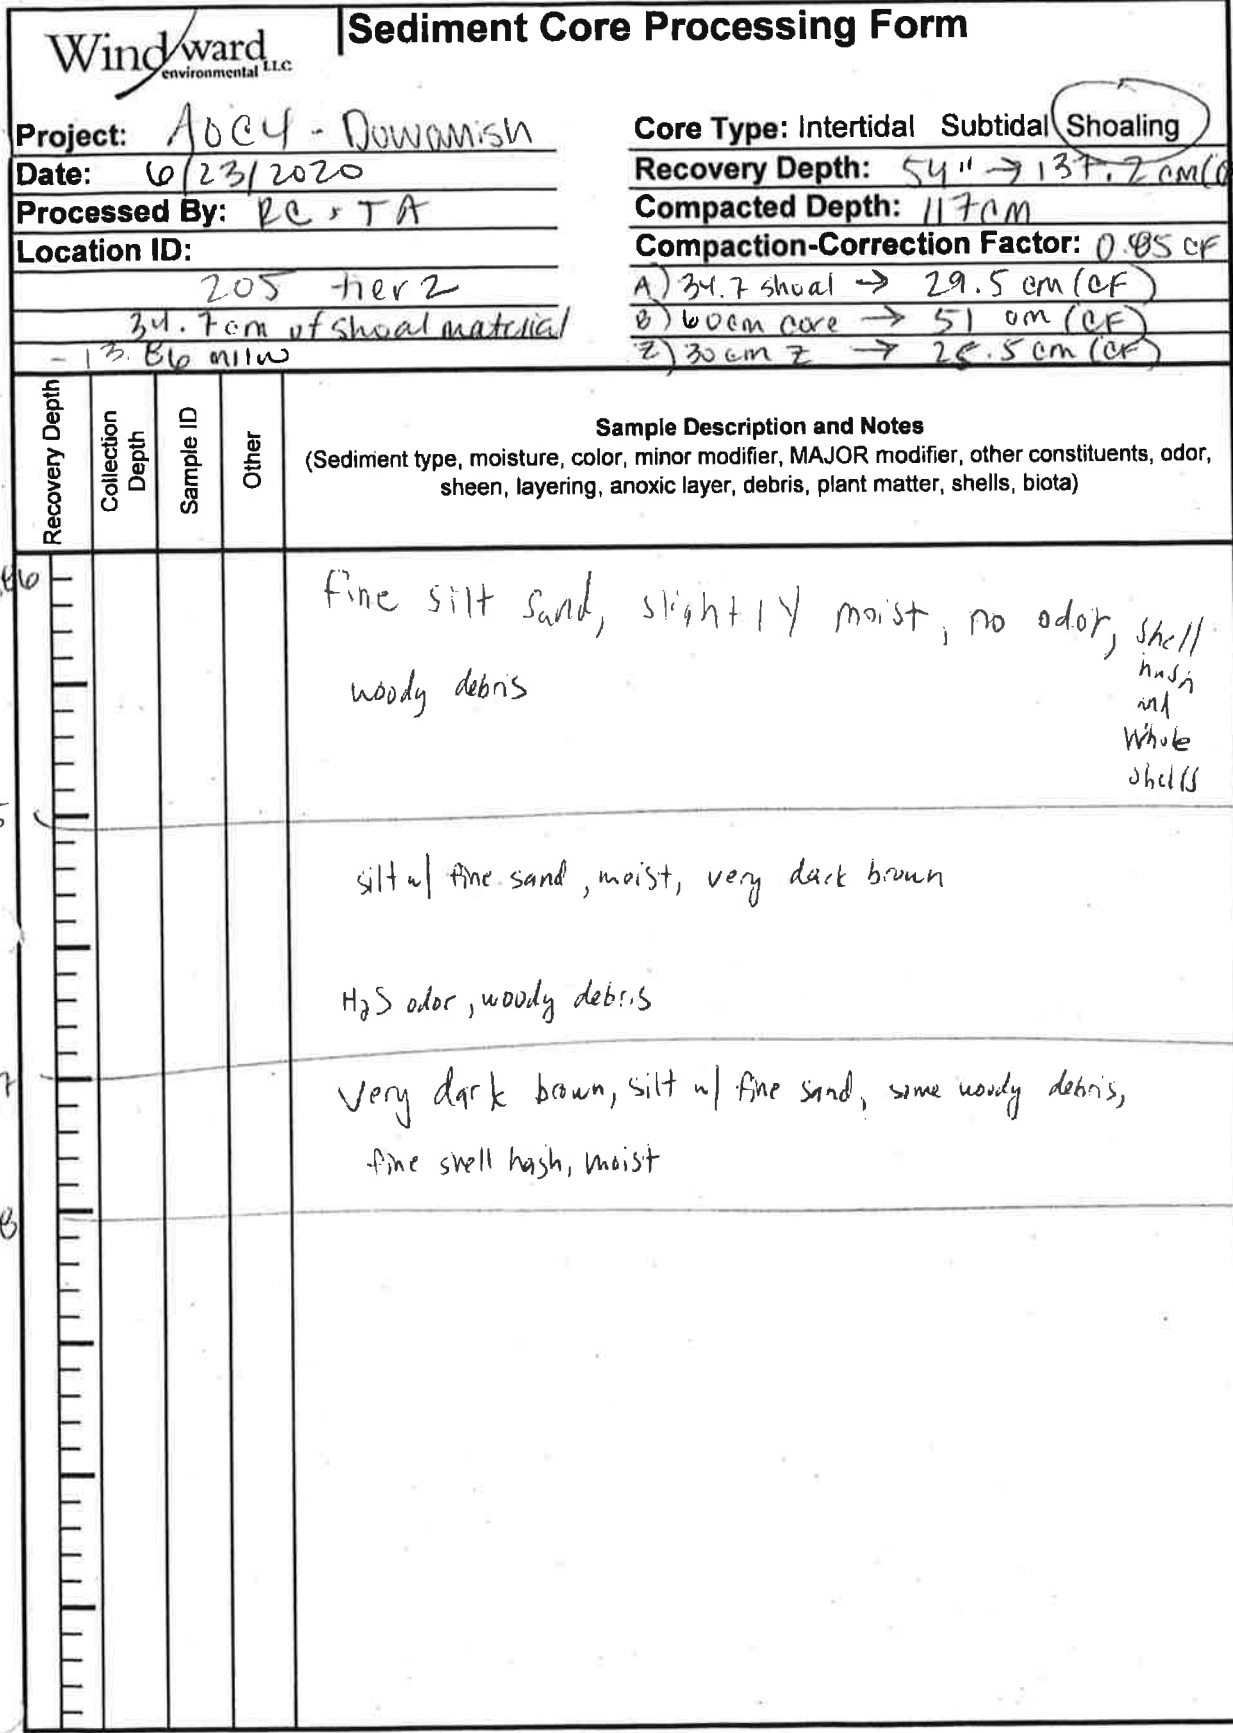 Windward
environmental LLC
Sediment Core Processing Form
Project: AOC4 - Duwamish
Date: 6/23/2020
Processed By: RC + TA
Location ID:
205 tier 2
34.7cm of shoal material
-13.86 mllw
Core Type: Intertidal Subtidal Shoaling
Recovery Depth: 54" → 137.2 cm
Compacted Depth: 117cm
Compaction-Correction Factor: 0.85 CF
A) 34.7 shoal → 29.5 cm (CF)
B) 60cm core → 51 cm (CF)
Z) 30 cm Z → 25.5 cm (CF)
Recovery Depth
Collection Depth
Sample ID
Other
Sample Description and Notes
(Sediment type, moisture, color, minor modifier, MAJOR modifier, other constituents, odor,
sheen, layering, anoxic layer, debris, plant matter, shells, biota)
fine silt sand, slightly moist, no odor, shell
hash
and
whole
shells
woody debris
silt w/ fine sand, moist, very dark brown
H2S odor, woody debris
Very dark brown, silt w/ fine sand, some woody debris,
fine shell hash, moist